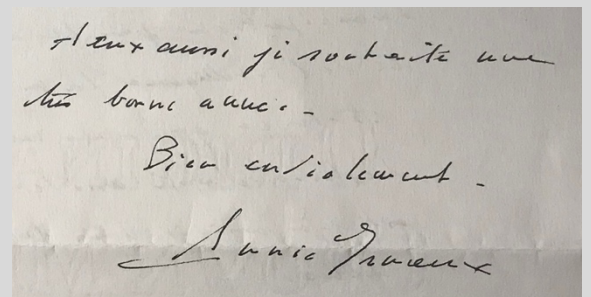 A eux aussi je souhaite une
très bonne année. -
Bien cordialement -
Annie Ernaux